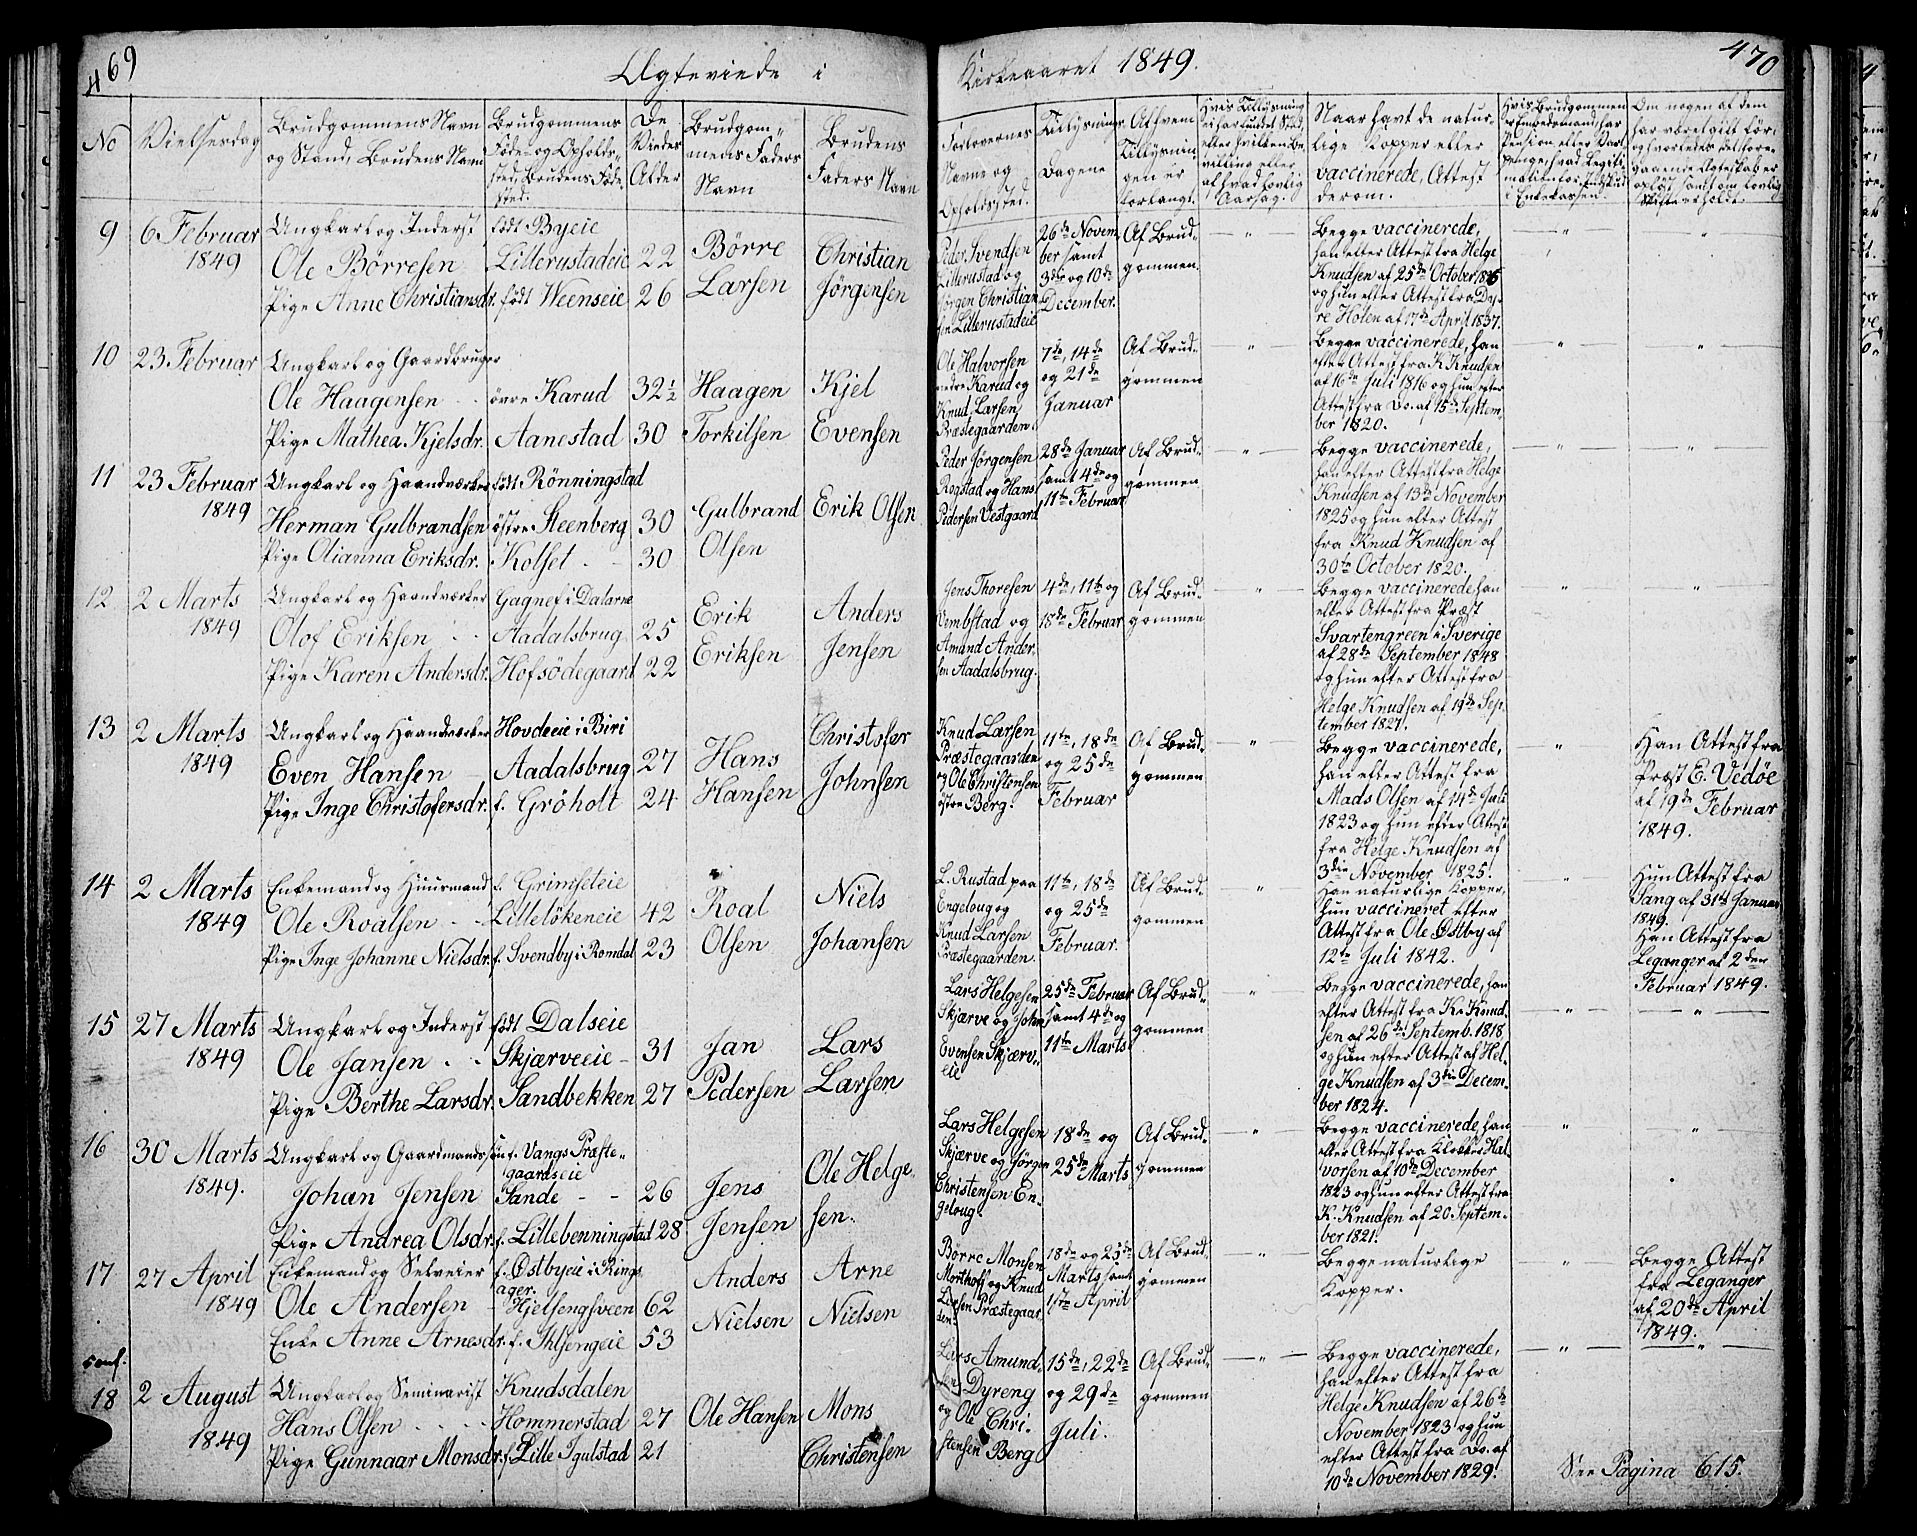 469
Ægteviede i
Kirkeaaret 1849.
470
No
Vielsesdag
Brudgommens Navn
og Stand, Brudens Navn
Brudgommens
Føde- og Opholds-
sted, Brudens Føde-
sted.
De
Viedes
Alder
Brudgom-
mens Faders
Navn
Brudens
Faders Navn
Forlovernes
Navne og
Opholdssted.
Tillysnings
Dagene
Af hvem
Tillysnin-
gen er
forlangt.
Hvis Tillysning
ei har fundet Sted,
efter hvilken Be-
villing eller
af hvad lovlig
Aarsag.
Naar havt de natur-
lige Kopper eller
vaccinerede, Attest
derom.
Hvis Brudgommen
er Embedsmand, har
Pension eller Var-
penge, hvad Legiti-
mation for Indskud
i Enkekassen.
Om nogen af dem
har været gift før,
og hvorledes det fore-
gaaende Ægteskab er
opløst samt om lovlig
Skifte er holdt.
9
6 Februar
1849
Ungkarl og Inderst
Ole Börresen
Pige Anne Christiansdr.
født Byeie
Lillerustadeie
født Weenseie
22
26
Börre
Larsen
Christian
Jörgensen
Peder Svendsen
Lillerustad og
Jörgen Christian
sen Lillerustadeie
26de Novem-
ber samt
3die og 10de
December.
Af Brud-
gommen.
Begge vaccinerede,
han efter Attest fra Helge
Knudsen af 25de October
og hun efter Attest fra Dy-
re Holen af 17de April 1837.
10
23 Februar
Ungkarl og Gaardbruger
Ole Haagensen
Pige Mathea Kjelsdr.
övre Karud
Aanestad
32½
30
Haagen
Torkilsen
Kjel
Evensen
Ole Halvorsen
nedre Karud og
Knud Larsen
Præstegaarden.
7de, 14de
og 21de
Januar
Af Brud-
gommen
Begge vaccinerede, han
efter Attest fra K. Knudsen
af 16de Juli 1816 og hun efter
Attest fra Do. af 15de Septem-
ber 1820.
11
23 Februar
1849
Ungkarl og Haandværker
Herman Gulbrandsen
Pige Olianna Eriksdr.
født Rönningstad
östre Steenberg
Kolset
30
30
Gulbrand
Olsen
Erik Olsen
Peder Jörgensen
Rogstad og Hans
Pedersen Vestgaard
28de Januar
samt 4de og
11te Februar
Af Brud-
gommen
Begge vaccinerede,
han efter Attest fra Helge
Knudsen af 13de November
1825 og hun efter Attest
fra Knud Knudsen af
30te October 1820.
12
2 Marts
1849
Ungkarl og Haandværker
Olof Eriksen
Pige Karen Andersdr.
Gagnef i Dalarne
Aadalsbrug
Hofsödegaard
25
22
Erik
Eriksen
Anders
Jensen
Jens Thoresen
Vembstad og
Amund Ander-
sen Aadalsbrug.
4de, 11te og
18de Februar
Af Brud-
gommen
Begge vaccinerede, han
efter Attest fra Præst
Svartengreen i Sverige
af 28de September 1848
og hun efter Attest fra
Helge Knudsen af 19de Sep-
tember 1827.
13
2 Marts
1849
Ungkarl og Haandværker
Even Hansen
Pige Inge Christofersdr.
Hovdeeie i Biri
Aadalsbrug
f. Gröholt
27
24
Hans
Hansen
Christofer
Johnsen
Knud Larsen
Præstegaarden
og Ole Christensen
östre Berg.
11te, 18de
og 25de
Februar
Af Brud-
gommen
Begge vaccinerede,
han efter Attest fra
Mads Olsen af 14de Juli
1823 og hun efter Attest
fra Helge Knudsen af
3die November 1825.
Han Attest fra
Præst E. Vedöe
af 19de Februar
1849.
14
2 Marts
1849
Enkemand og Huusmand
Ole Roalsen
Pige Inge Johanne Nielsdr.
f. Grimseteie
Lillelökeneie
f. Svendby i Romdal
42
23
Roal
Olsen
Niels
Johansen
L. Rustad paa
Engeloug og
Knud Larsen
Præstegaarden.
11te, 18de
og 25de
Februar.
Af Brud-
gommen
Han naturlige Kopper,
hun vaccineret efter
Attest fra Ole Østby af
12te Juli 1842.
Hun Attest fra
Sang af 31te Januar
1849.
Han Attest fra
Leganger af 2den
Februar 1849.
15
27 Marts
1849
Ungkarl og Inderst
Ole Jansen
Pige Berthe Larsdr.
født Dalseie
Skjærveeie
Sandbekken
31
27
Jan
Pedersen
Lars
Larsen
Lars Helgesen
Skjærve og John
Evensen Skjærv-
eie
25de Februar
samt 4de og
11te Marts.
Af Brud-
gommen
Begge vaccinerede, han
efter Attest fra K. Knud-
sen af 26de Septemb. 1818
og hun efter Attest af Hel-
ge Knudsen af 3die Decem-
ber 1824.
16
30 Marts
1849.
Ungkarl og Gaardmandssön
Johan Jensen
Pige Andrea Olsdr.
f. Vangs Præste-
gaardseie
Sande
f. Lillebenningstad
26
28
Jens
Jensen
Ole Helge-
sen.
Lars Helgesen
Skjærve og Jörgen
Christensen En-
geloug.
18de og
25de Marts
Af Brud-
gommen
Begge vaccinerede, han
efter Attest fra Klokker Hal-
vorsen af 10de December
1823 og hun efter Attest fra
K. Knudsen af 20. Septem-
ber 1821.
17
27 April
1849
Enkemand og Selveier
Ole Andersen
Enke Anne Arnesdr.
f. Østbyeie i Rings-
ager.
Hjelsengsveen
62
53
Anders
Nielsen
Arne
Nielsen
Börre Monsen
og Knud
Larsen Præstegaar-
den.
18de og 25de
Marts samt
1ste April
Af Brud-
gommen
Begge naturlige
Kopper.
Begge Attest
fra Leganger
af 20de April
1849.
conf.
18
2 August
1849
Ungkarl og Seminarist
Hans Olsen
Pige Gunnaar Monsdr.
Knudsdalen
Hommerstad
f. Lille Igulstad
27
21
Ole Hansen
Mons
Christensen
Lars Amund-
sen Dyreng
og Ole Chri-
stensen Berg
15de, 22de
og 29de
Juli.
Af Brud-
gommen
Begge vaccinerede,
han efter Attest fra
Helge Knudsen af 26de
November 1823 og hun
efter Attest fra Do. af
10de November 1829.
See Pagina 615.